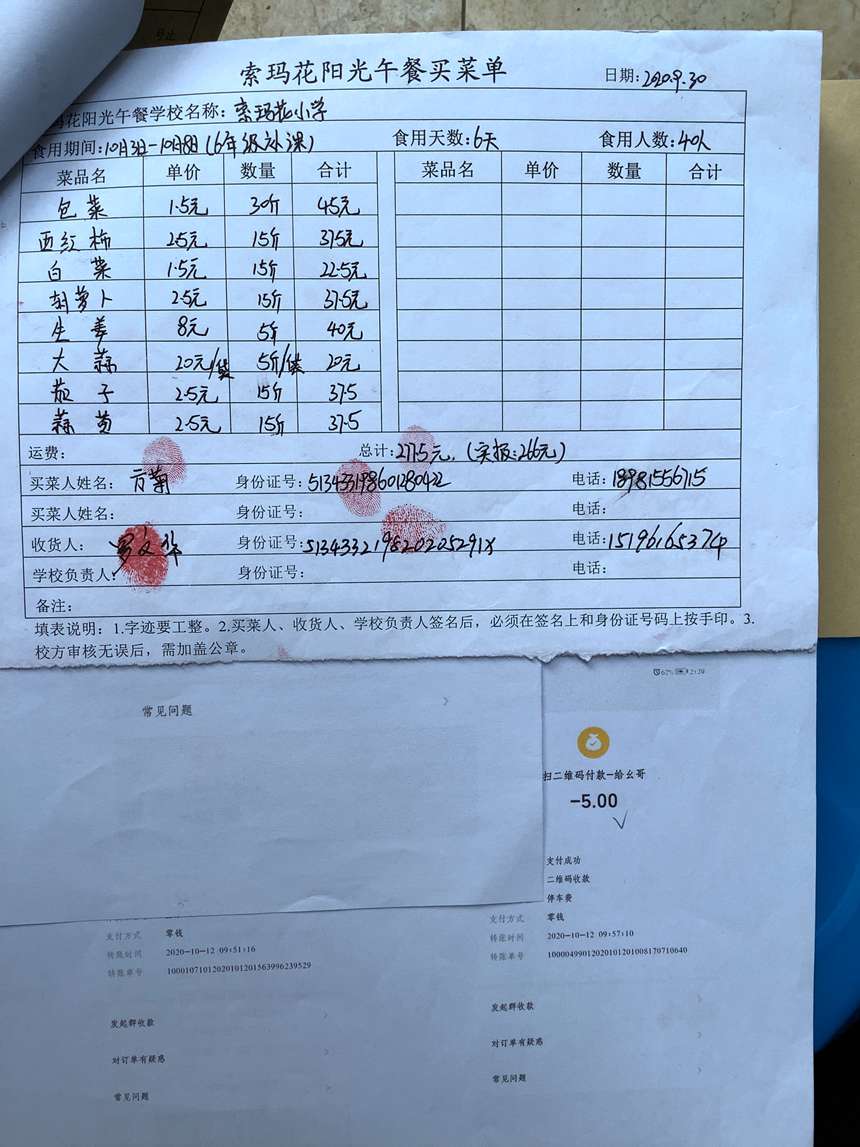 索玛花阳光午餐买菜单
日期:2020.9.30
玛花阳光午餐学校名称:索玛花小学
食用期间:10月3日-10月8日(6年级补课) 食用天数:6天 食用人数:40人
菜品名 单价 数量 合计 菜品名 单价 数量 合计
包菜 1.5元 30斤 45元
西红柿 2.5元 15斤 37.5元
白菜 1.5元 15斤 22.5元
胡萝卜 2.5元 15斤 37.5元
生姜 8元 5斤 40元
大蒜 20元/袋 5斤/袋 20元
茄子 2.5元 15斤 37.5
蒜苗 2.5元 15斤 37.5
运费: 总计:277.5元,(实报:266元)
买菜人姓名: 身份证号:513433198601280422 电话:18981556715
买菜人姓名: 身份证号: 电话:
收货人:罗文华 身份证号:51343321982020 5291X 电话:15196165374
学校负责人: 身份证号: 电话:
备注:
填表说明:1.字迹要工整。2.买菜人、收货人、学校负责人签名后,必须在签名上和身份证号码上按手印。3.
校方审核无误后,需加盖公章。
62% 2:20
常见问题
扫二维码付款-给幺哥
-5.00
支付成功
二维码收款
停车费
支付方式 零钱
转账时间 2020-10-12 09:51:16
转账单号 10001071012020101201563996239529
支付方式 零钱
转账时间 2020-10-12 09:57:10
转账单号 1000049901202010120100817071 0640
发起群收款
对订单有疑惑
常见问题
发起群收款
对订单有疑惑
常见问题